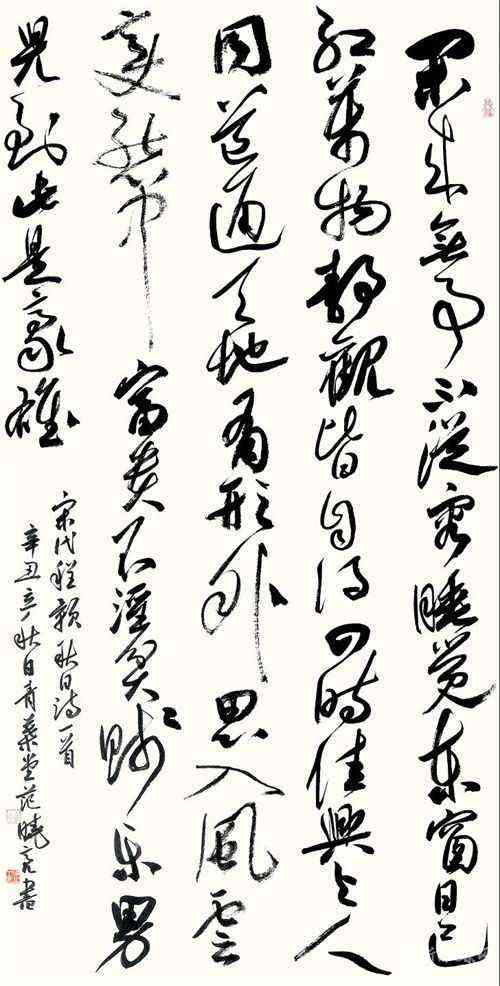 閑来無事不從容睡覺東窗日已
紅萬物靜觀皆自得四時佳興與人
同道通天地有形外思入風雲
變態中富貴不淫貧賤樂男
兒到此是豪雄
宋代程顥秋日詩一首
辛丑秋日青堂范曉書